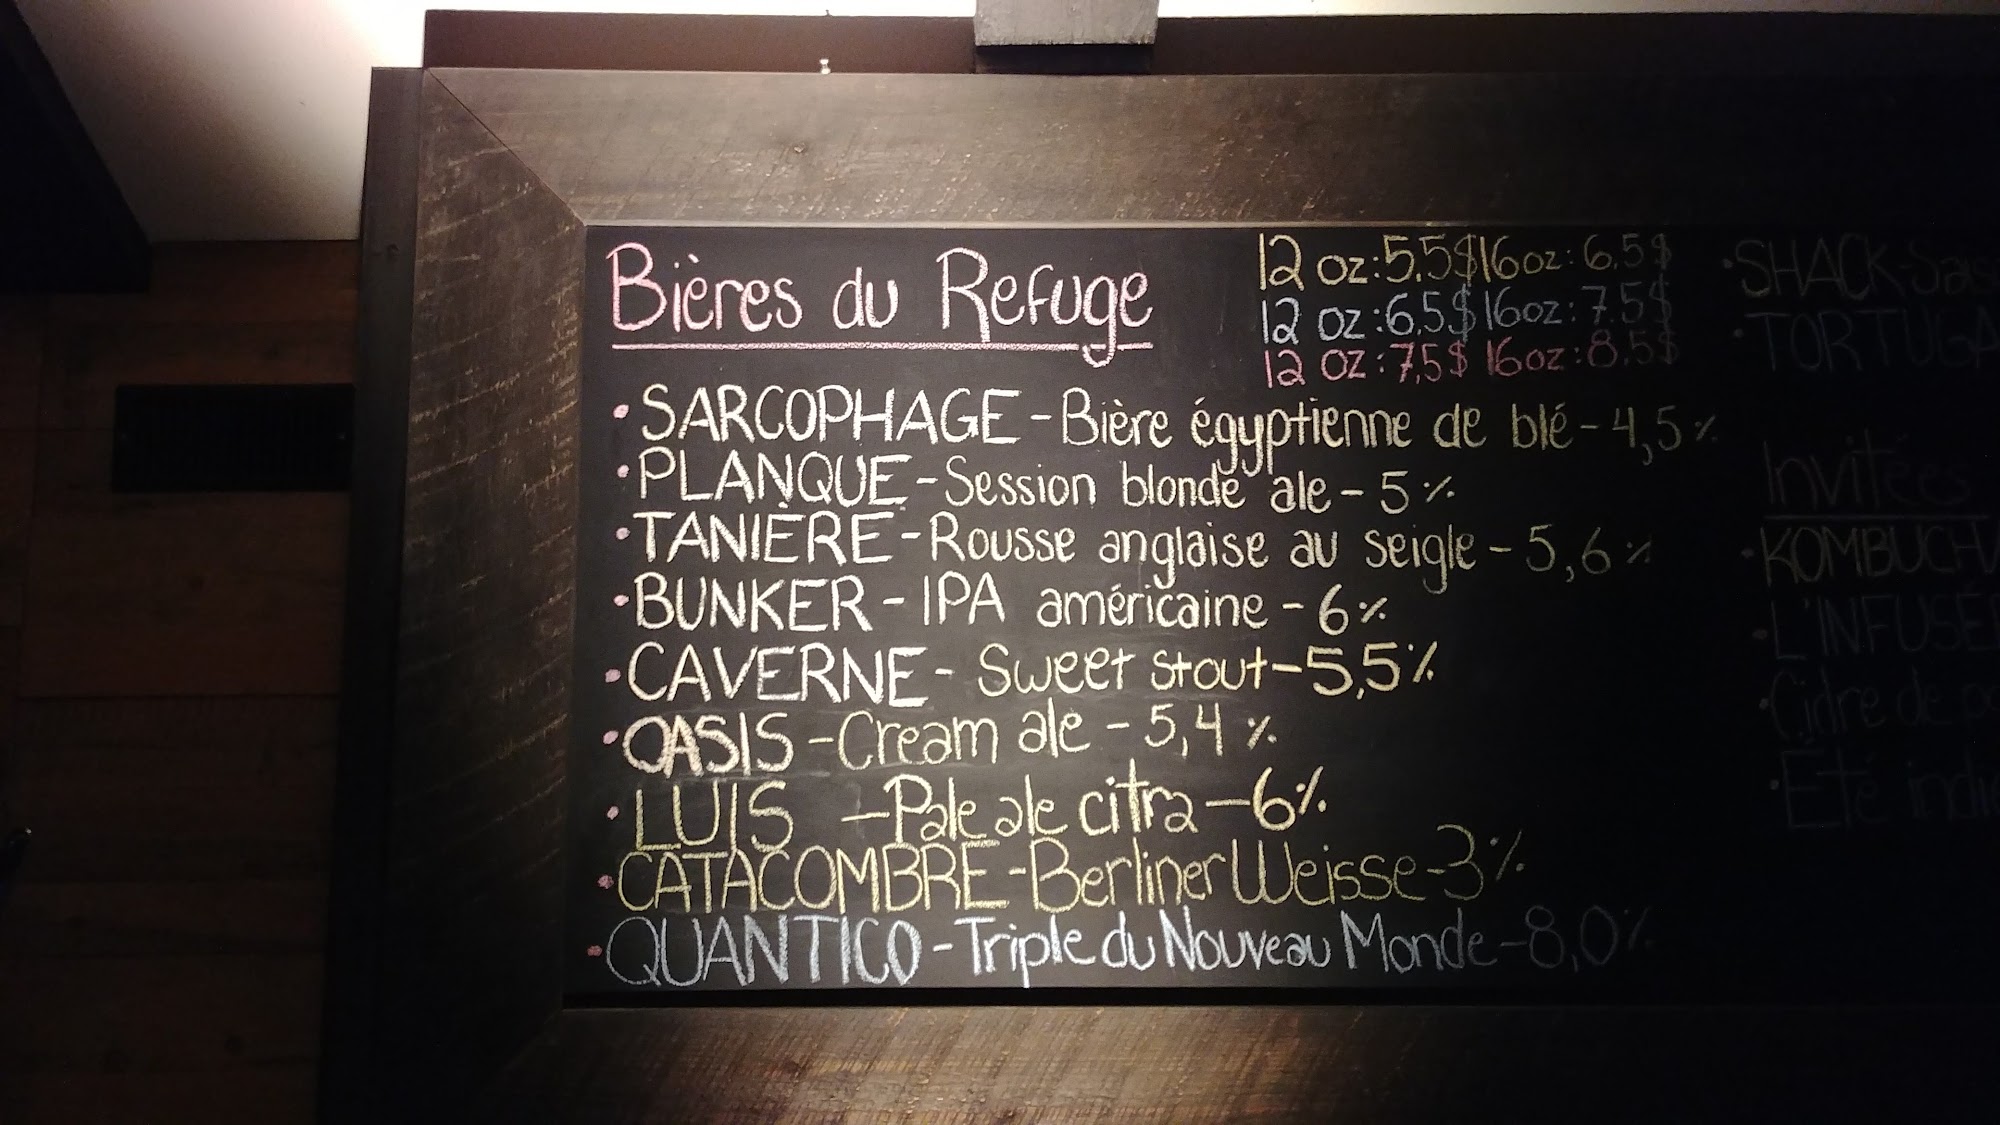 Bières du Refuge
12 oz: 5,5$ 16oz: 6,5$
12 oz: 6,5$ 16oz: 7,5$
12 oz: 7,5$ 16oz: 8,5$
• SARCOPHAGE - Bière égyptienne de blé - 4,5%
• PLANQUE - Session blonde ale - 5%
• TANIÈRE - Rousse anglaise au seigle - 5,6%
• BUNKER - IPA américaine - 6%
• CAVERNE - Sweet stout - 5,5%
• OASIS - Cream ale - 5,4%
• LUIS - Pale ale citra - 6%
• CATACOMBRE - Berliner Weisse - 3%
• QUANTICO - Triple du Nouveau Monde - 8,0%
• SHACK -
• TORTUGA
Invitées
• KOMBUCH
• L'INFUSÉ
• Cidre de
• Été